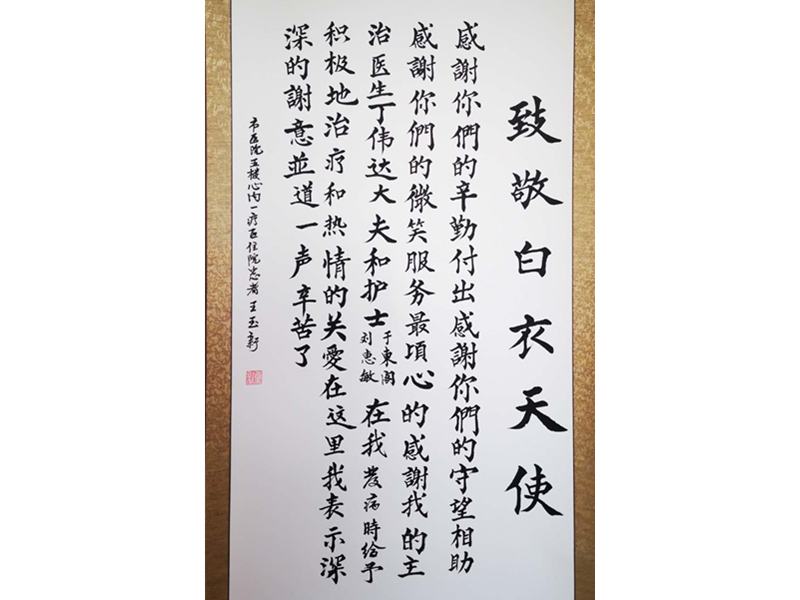 致敬白衣天使
感謝你們的辛勤付出感謝你們的守望相助
感謝你們的微笑服务最頃心的感謝我的主
治医生丁伟达大夫和护士于東阁刘惠敏在我發病時给予
积极地治疗和热情的关愛在这里我表示深
深的謝意並道一声辛苦了
市医院五楼心内一疗区住院患者王玉新